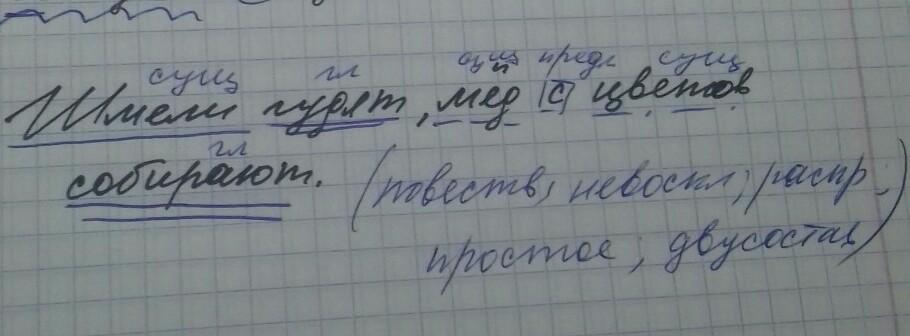 сущ гл сущ предл сущ
Шмели гудят, мед с цветов
гл
собирают. (повеств; невоскл; распр.;
простое; двусостав)